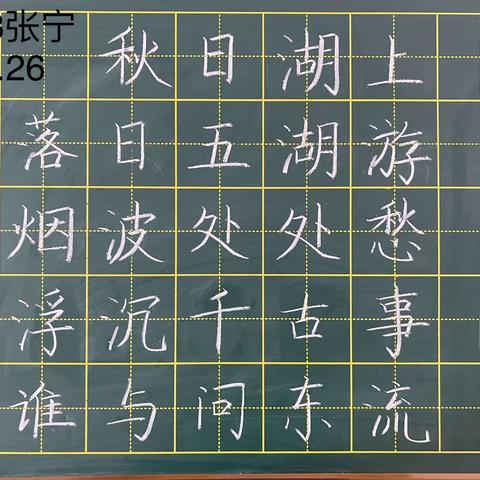 张宁
.26
秋日湖上
落日五湖游
烟波处处愁
浮沉千古事
谁与问东流